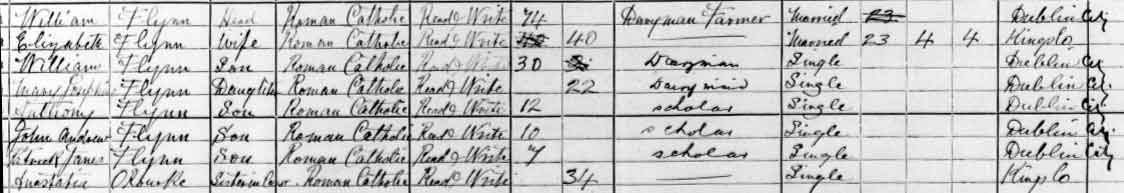 William Flynn Head Roman Catholic Read & Write 74 Dairyman Farmer Married 23 Dublin City
Elizabeth Flynn Wife Roman Catholic Read & Write 40 Married 23 4 4 Kings Co
William Flynn Son Roman Catholic Read & Write 30 Dairyman Single Dublin City
Mary Josephine Flynn Daughter Roman Catholic Read & Write 22 Single Dublin City
Anthony Flynn Son Roman Catholic Read & Write 12 scholar Single Dublin City
John Andrew Flynn Son Roman Catholic Read & Write 10 scholar Single Dublin City
Patrick James Flynn Son Roman Catholic Read & Write 7 scholar Single Dublin City
Anastasia ORourke Sister in Law Roman Catholic Read & Write 34 Single Kings Co